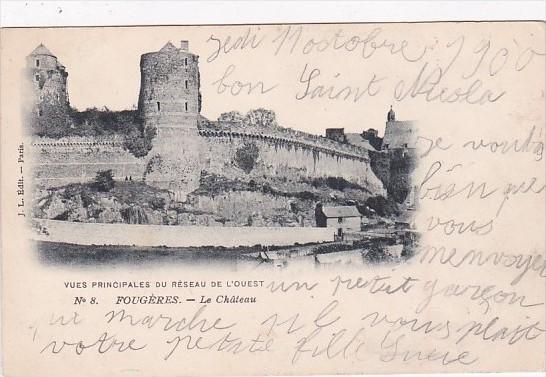 jedi 11 octobre 1900
bon Saint Nicola
je voudrè
bièn que
vous
m'envoyer
J. L. Edit. - Paris.
VUES PRINCIPALES DU RÉSEAU DE L'OUEST
un petit garçon
No 8. FOUGÈRES. — Le Château
qui marche s'il vous plait
votre petite fille Lucie